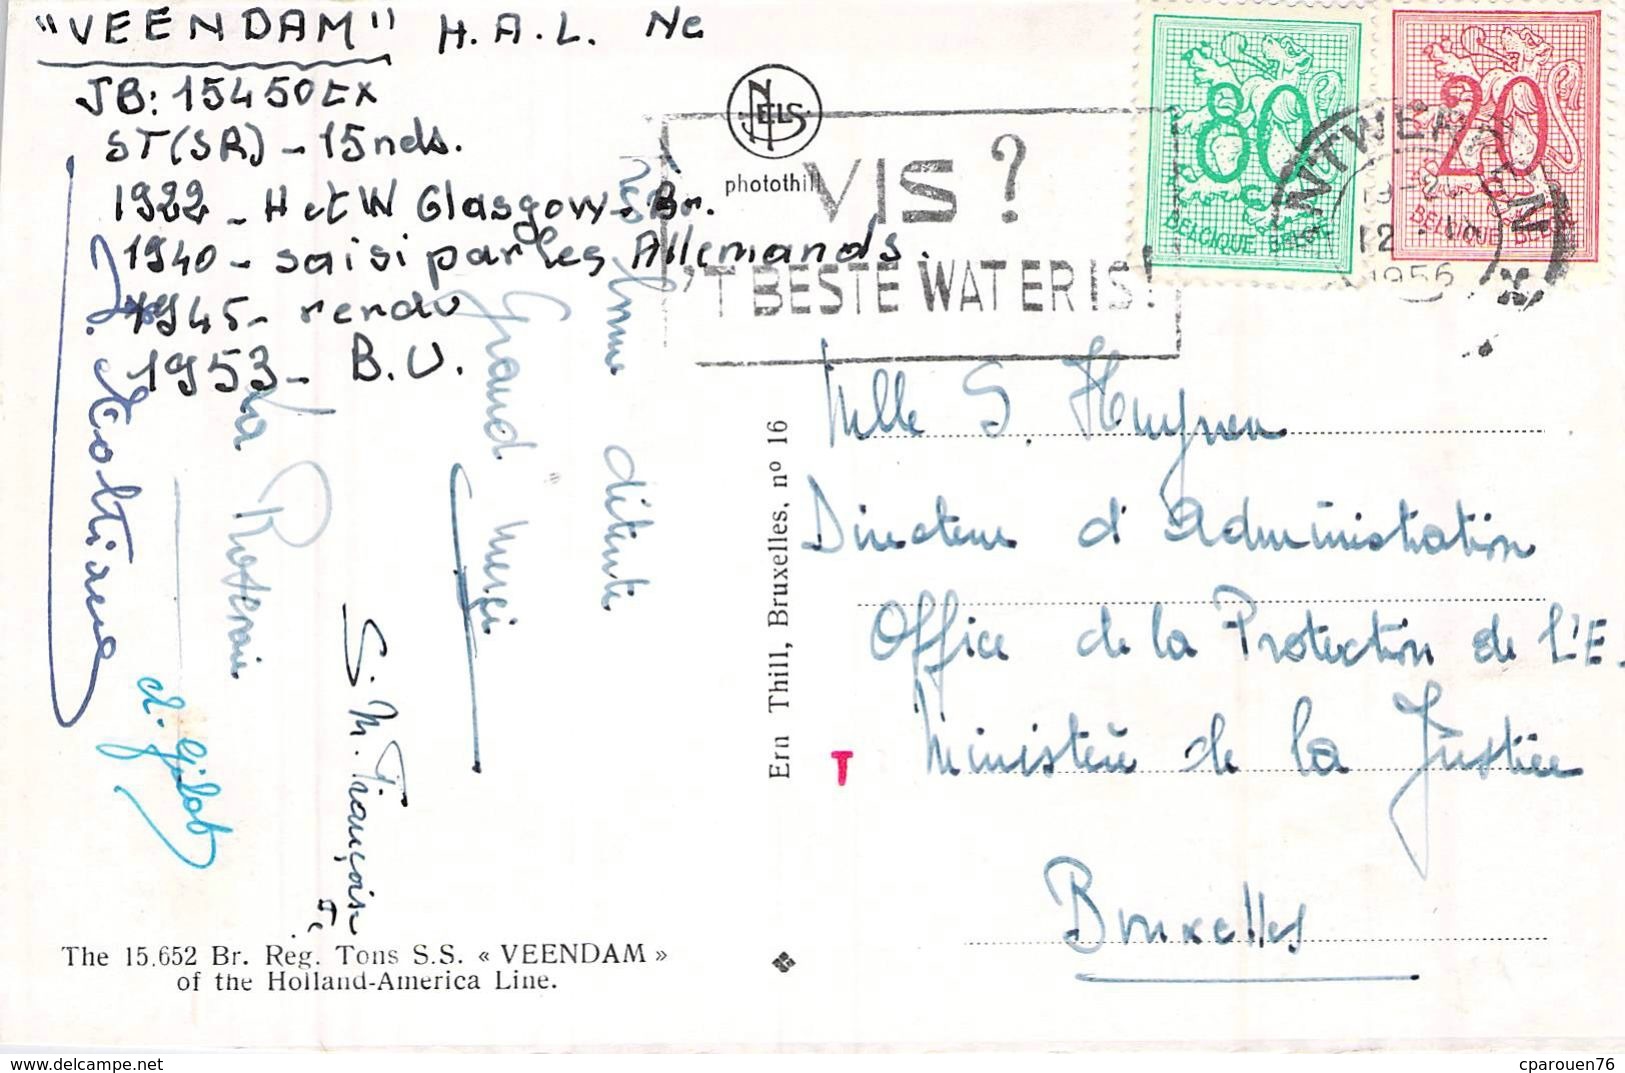 "VEENDAM" H.A.L. Ne
JB: 15450tx
ST(SR) - 15nds.
1922 - H et W Glasgow - Br.
1940 - saisi par les Allemands.
1945 - rendu
1953 - B.U.
NELS
photothill
VIS ?
'T BESTE WATER IS!
80
BELGIQUE BELGIE
20
BELGIQUE BELGIE
ANTWERPEN
12
1956
détente
Grand merci
La Roseraie
S. M. François
Ern Thill, Bruxelles, nº 16
T
Mlle S. Huynen
Directeur d'Administration
Office de la Protection de l'E.
Ministère de la Justice
Bruxelles
The 15.652 Br. Reg. Tons S.S. « VEENDAM »
of the Holland-America Line.
www.delcampe.net
cparouen76